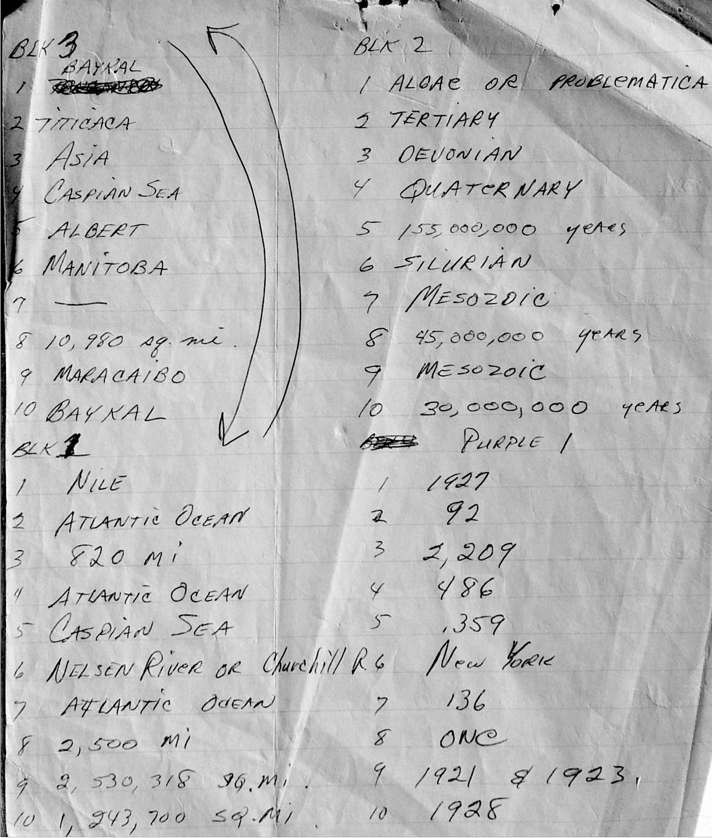 BLK 3
BAYKAL
1
2 TITICACA
3 ASIA
4 CASPIAN SEA
5 ALBERT
6 MANITOBA
7 —
8 10,980 sq. mi.
9 MARACAIBO
10 BAYKAL
BLK 1
1 NILE
2 ATLANTIC OCEAN
3 820 MI
4 ATLANTIC OCEAN
5 CASPIAN SEA
6 NELSEN RIVER OR Churchill R
7 ATLANTIC OCEAN
8 2,500 MI
9 2,530,318 SQ.MI.
10 1,243,700 SQ.MI
BLK 2
1 ALGAE OR PROBLEMATICA
2 TERTIARY
3 DEVONIAN
4 QUATERNARY
5 155,000,000 years
6 SILURIAN
7 MESOZOIC
8 45,000,000 YEARS
9 MESOZOIC
10 30,000,000 YEARS
PURPLE 1
1 1927
2 92
3 2,209
4 486
5 .359
6 New York
7 136
8 ONE
9 1921 & 1923.
10 1928